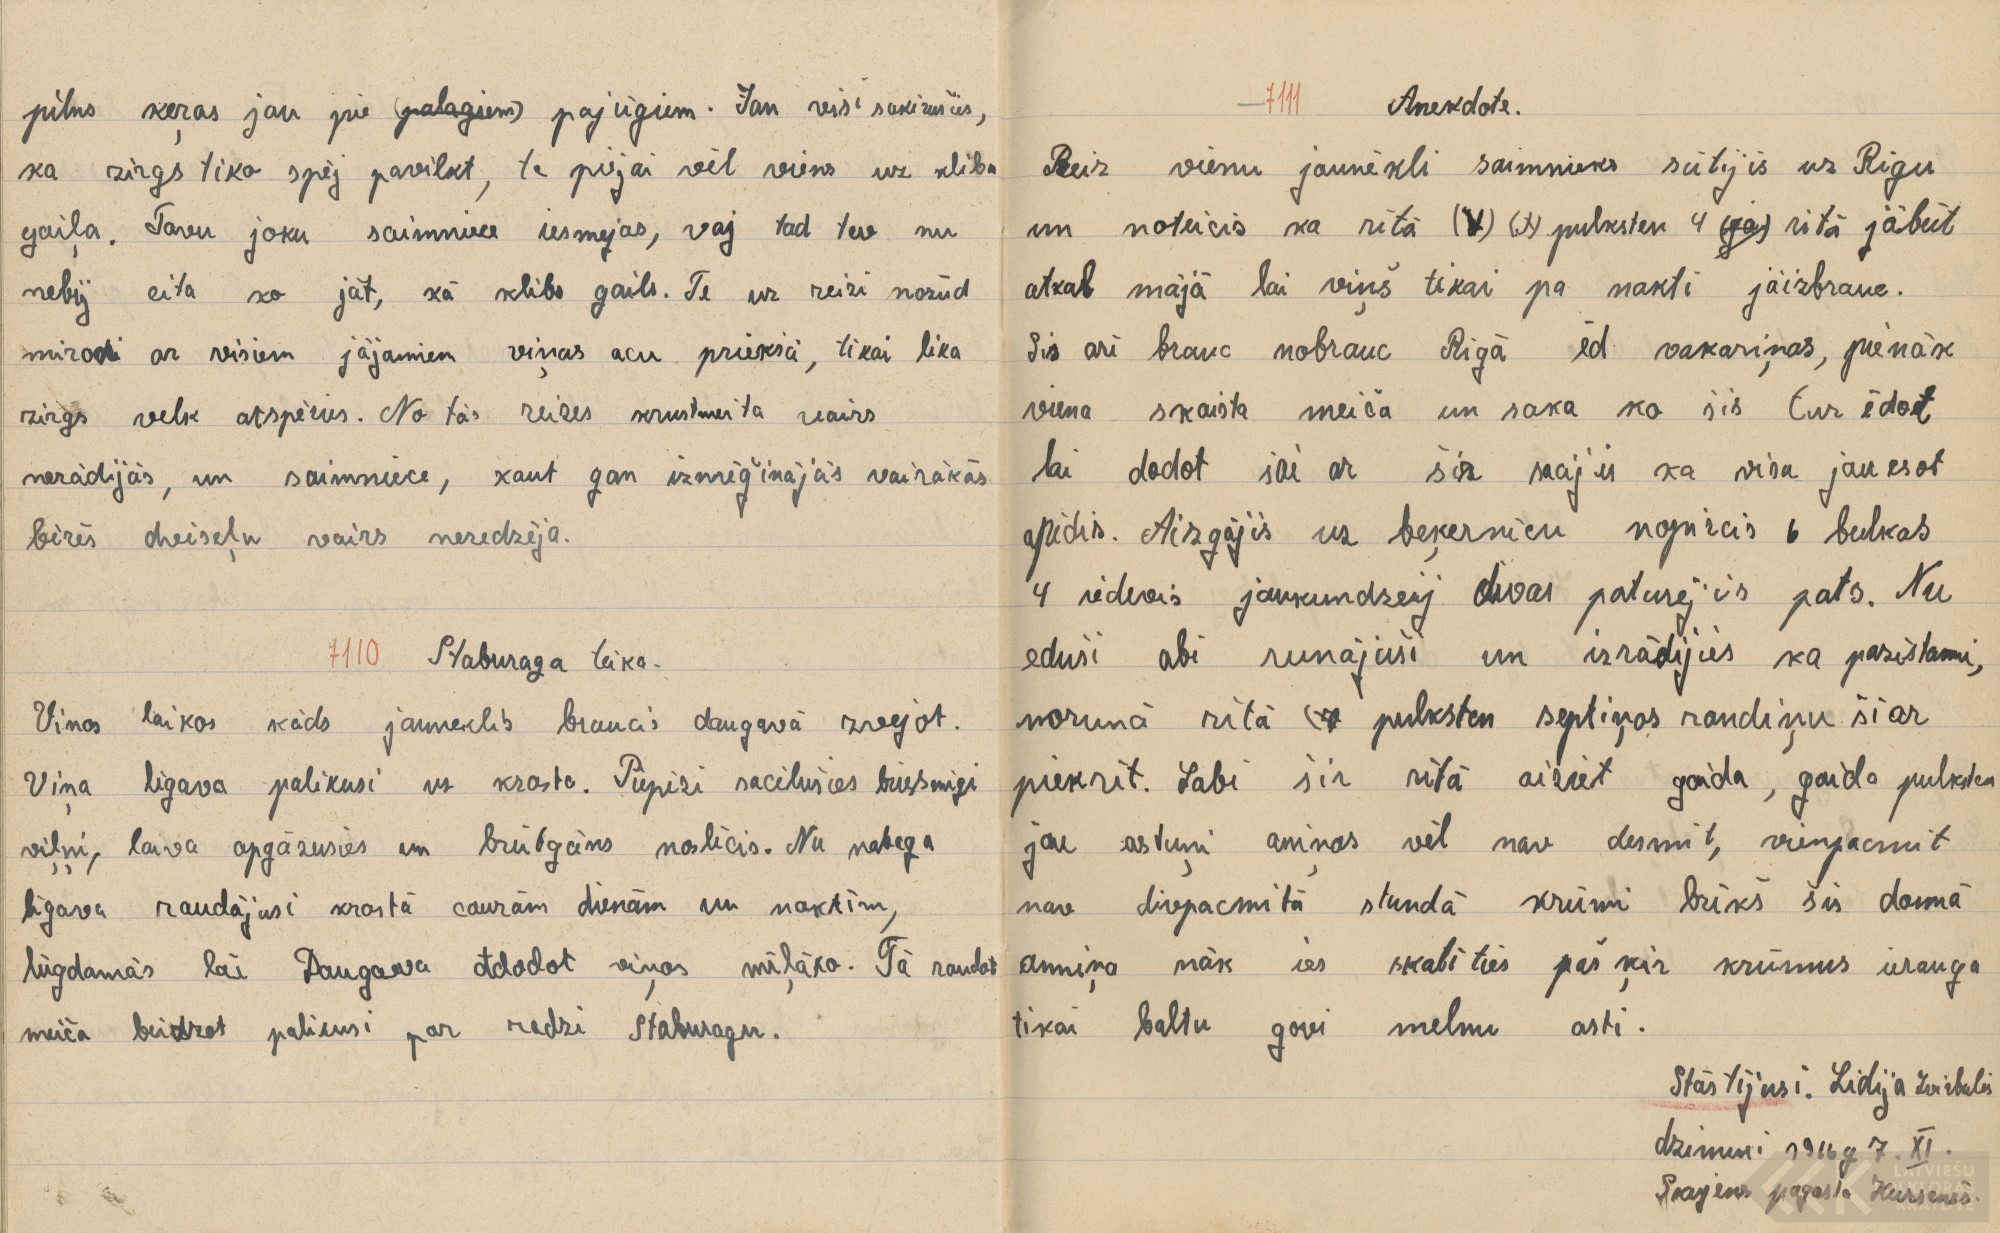 pilns ķeŗas jau pie (palagiem) pajūgiem. Jau visi sakāušies,
ka zirgs tiko spēj pavilkt, te piejāi vēl viens uz kliba
gaiļa. Tavu joku saimniece iesmejas, vaj tad tev nu
nebij cita ko jāt, kā klibs gails. Te uz reizi nozūd
miroņi ar visiem jājamiem viņas acu priekšā, tikai lika
zirgs velk atspēries. No tās reizes krustmeita vairs
nerādijās, un saimniece, kaut gan izmēģinājās vairākās
birēs dvēseļu vairs neredzēja.
7110 Staburaga teika.
Viņos laikos kāds jauneklis braucis daugavā zvejot.
Viņa līgava palikusi uz krasta. Pēpēži sacēlušies briesmīgi
viļņi, laiva apgāzusies un brūtgāns noslīcis. Nu nabaga
līgava raudājusi krastā caurām dienām un naktīm,
lūgdamās lai Daugava atdodot viņas mīļāko. Tā raudot
meiča beidzot palikusi par radzi Staburagu.
7111 Anekdote.
Reiz vienu jaunekli saimnieks sūtijis uz Rīgu
un noteicis ka rītā pulksten 4 (ga) rītā jābūt
atkal mājā lai viņš tikai pa nakti jāizbrauc.
Šis arī brauc nobrauc Rīgā ēd vakariņas, pienāk
viena skaista meiča un saka ko šis tur ēdot
lai dodot šāi ar šis sacijis ka visu jau esot
apēdis. Aizgājis uz beķerneicu nopircis 6 bulkas
4 iedevis jaukundzeij divas paturējis pats. Nu
ēduši abi runājuši un izrādījies ka pazīstami,
norunā rītā pulksten septiņos randiņu šī ar
piekrīt. Labi šis rītā aiziet gaida, gaida pulksten
jau astuņi anniņas vēl nav desmit, vienpacmit
nav divpacmitā stundā krūmi brīkš šis domā
anniņa nāk ies skatīties pašķir krūmus ierauga
tikai baltu govi melnu asti.
Stāstijusi. Lidija Zvirbulis
dzimusi 1916 g 7. XI.
Skajenes pagasta Kursenēs.
LATVIEŠU
FOLKLORAS
KRĀTUVE